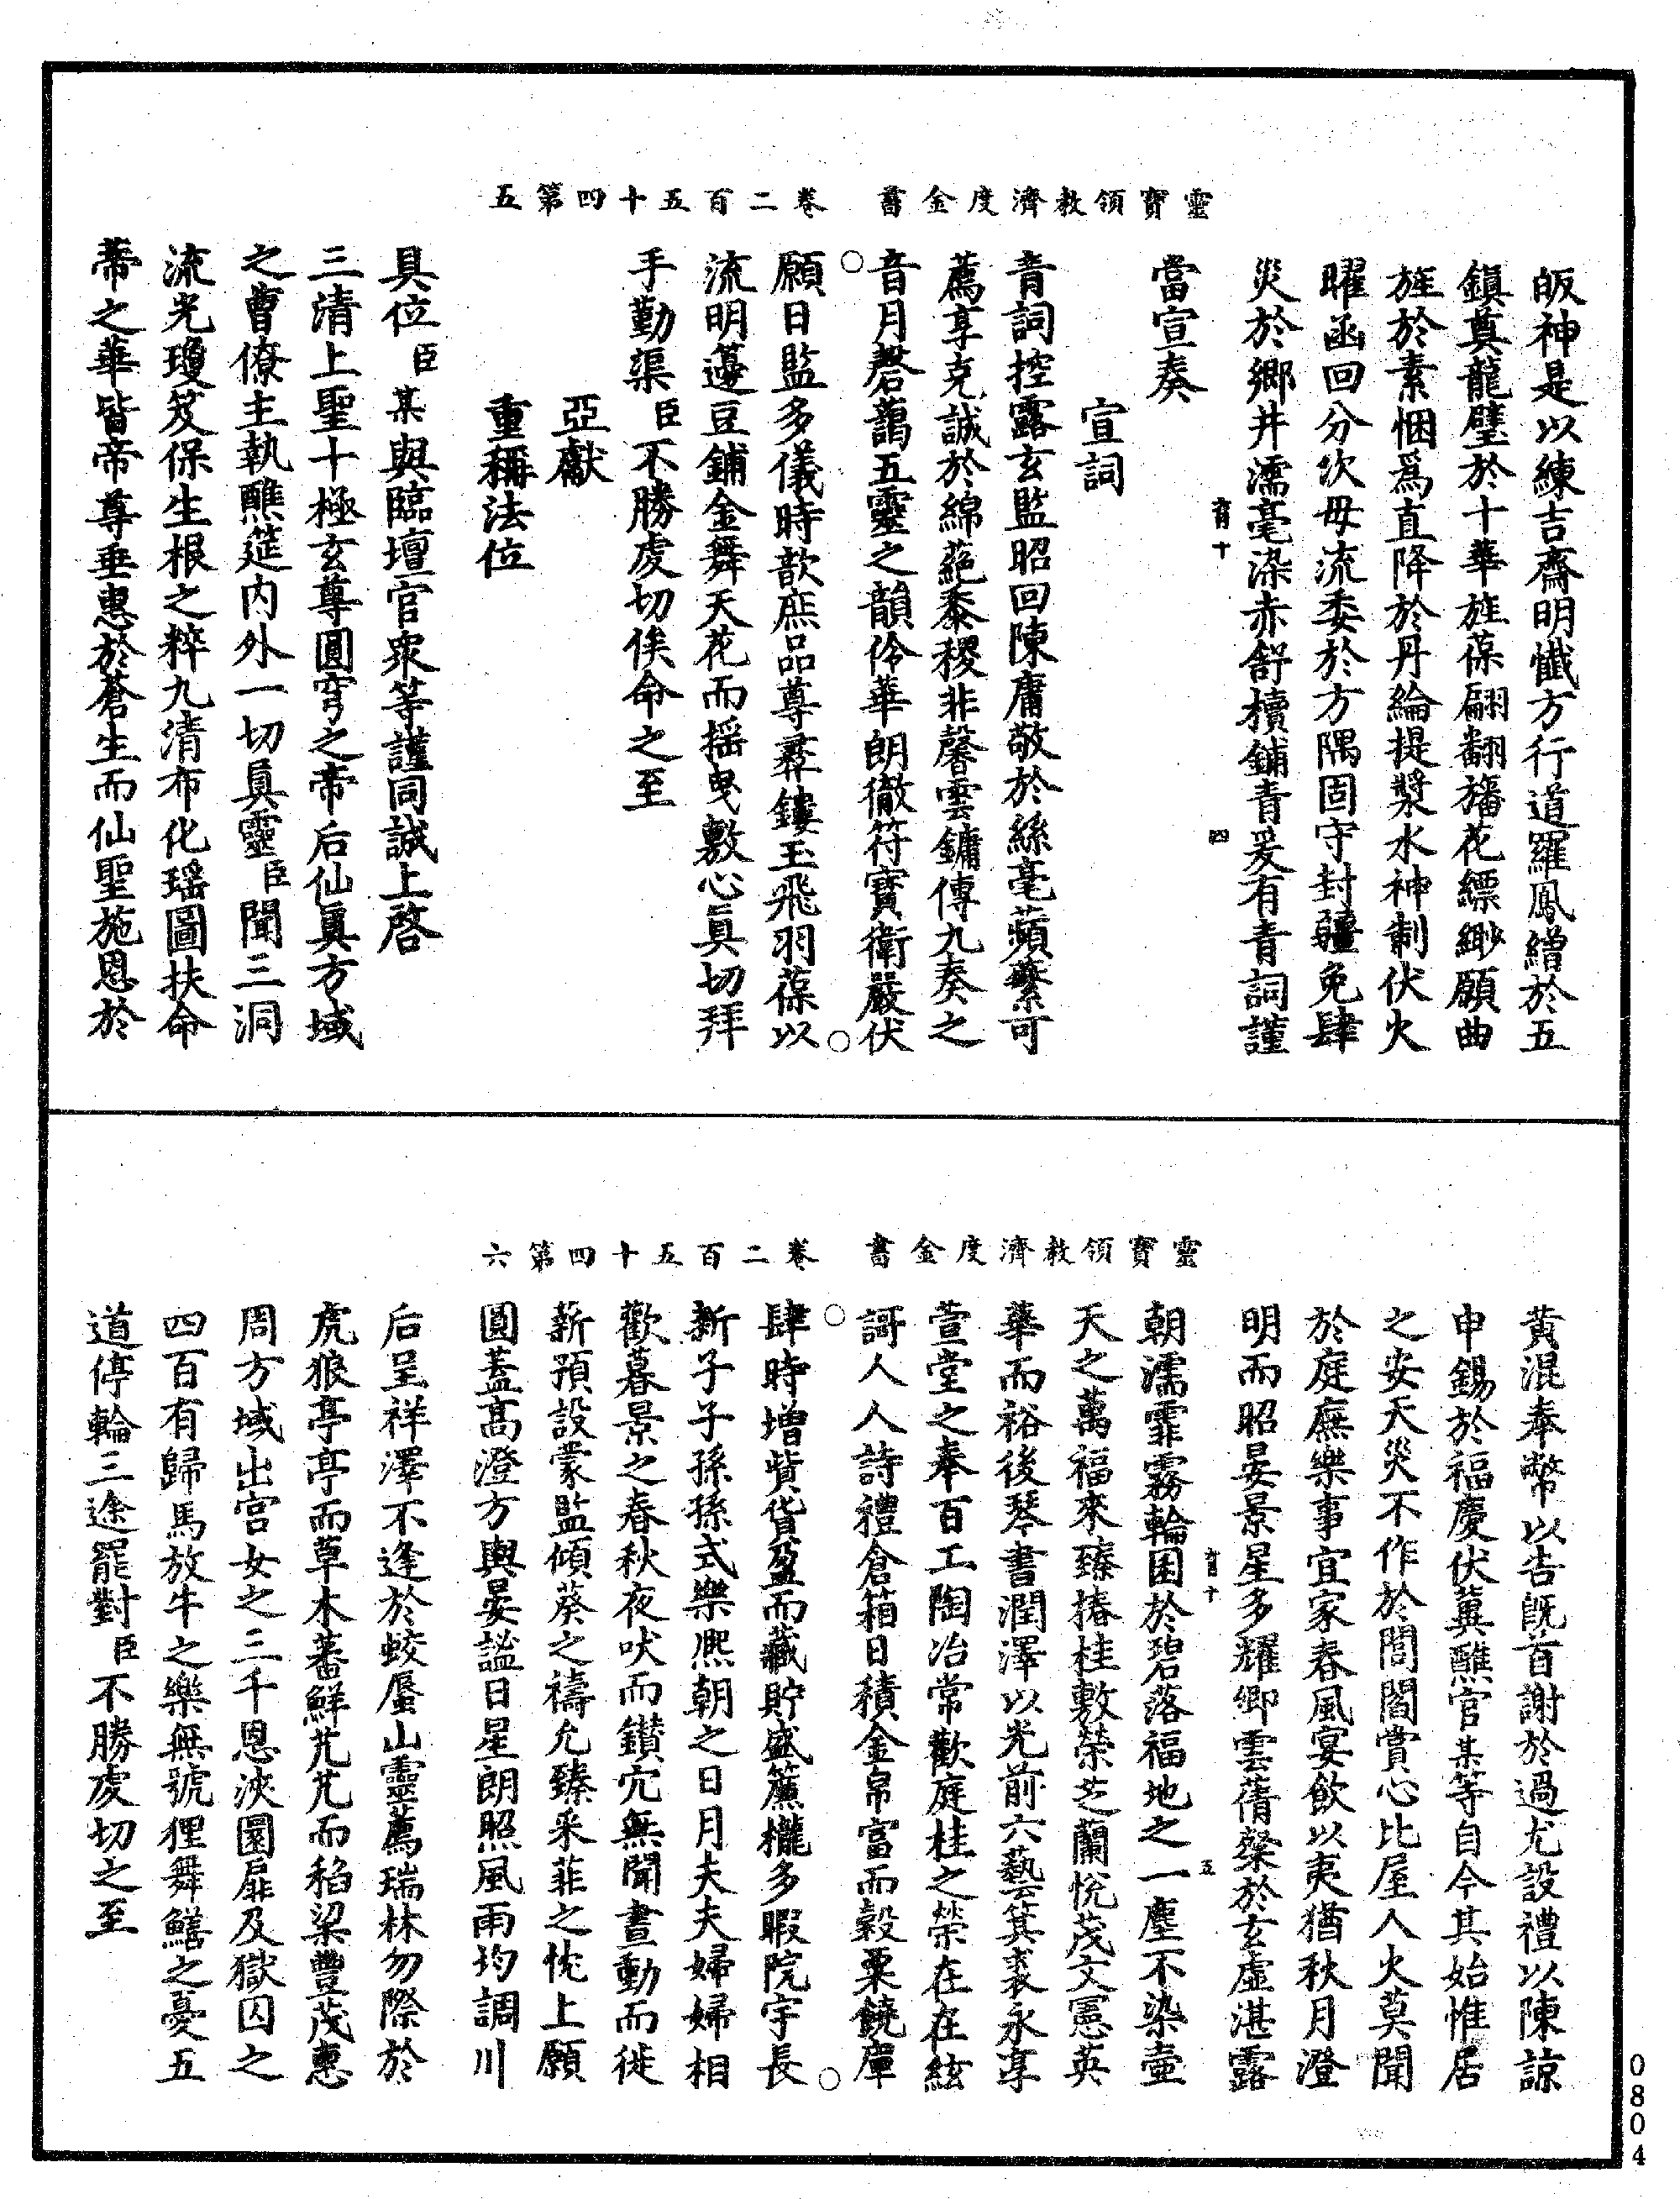 靈寶領教濟度金書　卷二百五十四第五
皈神是以練吉齋明懺方行道羅鳳繒於五
鎮奠龍璧於十華旌葆翩翻旛花縹緲願曲
旌於素悃爲直降於丹綸提漿水神制伏火
曜函回分次毋流委於方隅固守封疆免肆
災於鄉井濡毫染赤舒櫝鋪青爰有青詞謹
當宣奏
宣詞
青詞控露玄監昭回陳庸敬於絲毫蘋蘩可
薦享克誠於綿蕝黍稷非馨雲鏞傳九奏之
音月磬藹五靈之韻伶華朗徹符寶衛嚴伏
願日監多儀時歆庶品尊彞鏤玉飛羽葆以
流明籩豆鋪金舞天花而摇曳敷心眞切拜
手勤渠臣不勝虔切俟命之至
亞獻
重稱法位
具位臣某與臨壇官衆等謹同誠上啓
三清上聖十極玄尊圓穹之帝后仙眞方域
之曹僚主執醮筵内外一切眞靈臣聞三洞
流光瓊笈保生根之粹九清布化瑶圖扶命
蒂之華皆帝尊垂惠於蒼生而仙聖施恩於
靈寶領教濟度金書　卷二百五十四第六
黄混奉幣以告既首謝於過尤設禮以陳諒
申錫於福慶伏冀醮官某等自今其始惟居
之安天災不作於閭閻賞心比屋人火莫聞
於庭廡樂事宜家春風宴飲以夷猶秋月澄
明而昭晏景星多耀卿雲蒨粲於玄虚湛露
朝濡霏霧輪囷於碧落福地之一塵不染壺
天之萬福來臻椿桂敷榮芝蘭悦茂文憲英
華而裕後琴書潤澤以光前六藝箕裘永享
萱堂之奉百工陶冶常歡庭桂之榮在在絃
謌人人詩禮倉箱日積金帛富而穀粟饒廩
肆時增貲貨盈而藏貯盛簾櫳多暇院宇長
新子子孫孫式樂熙朝之日月夫夫婦婦相
歡暮景之春秋夜吠而鑚穴無聞晝動而徙
薪預設蒙監傾葵之禱允臻采菲之忱上願
圓蓋高澄方輿晏謐日星朗照風雨均調川
后呈祥澤不逢於蛟蜃山靈薦瑞林勿際於
虎狼亭亭而草木蕃鮮芃芃而稻梁豐茂惠
周方域出宫女之三千恩浹圜扉及獄囚之
四百有歸馬放牛之樂無號狸舞鱔之憂五
道停輪三途罷對臣不勝虔切之至
0804